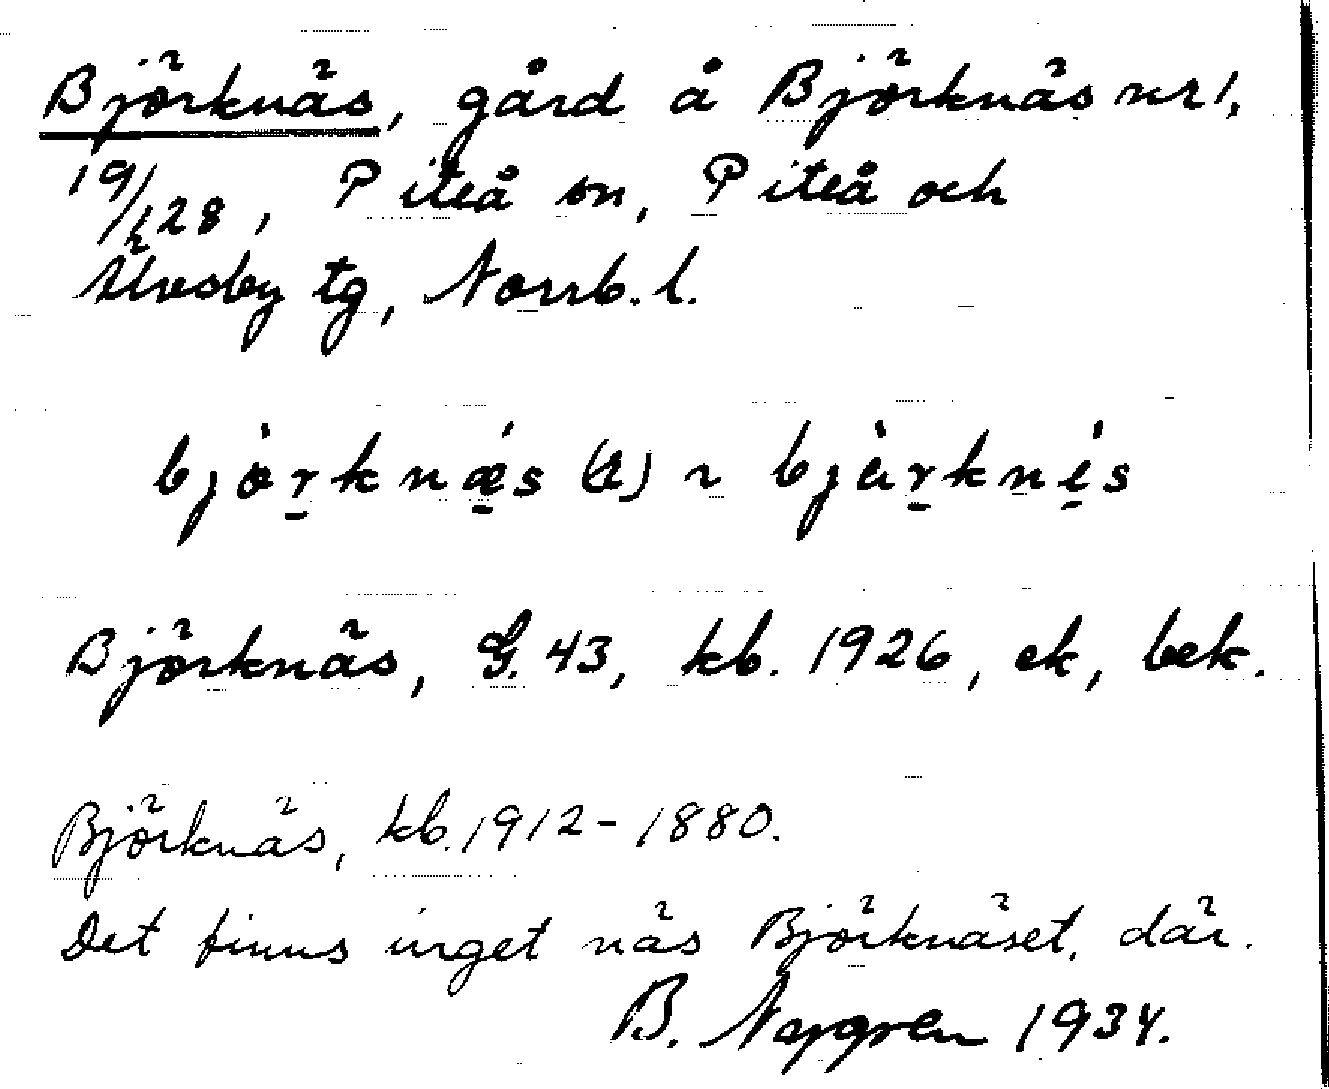 Björknäs, gård å Björknäs nr 1,
19/128, Piteå sn, Piteå och
Älvsby tg, Norrb. l.
bjò̱rknǽ̱s (2) ~ bjùṟkné̱s
Björknäs, G. 43, kb. 1926, ek, bek.
Björknäs, kb. 1912-1880.
Det finns inget näs Björknäset, där.
B. Nygren 1934.